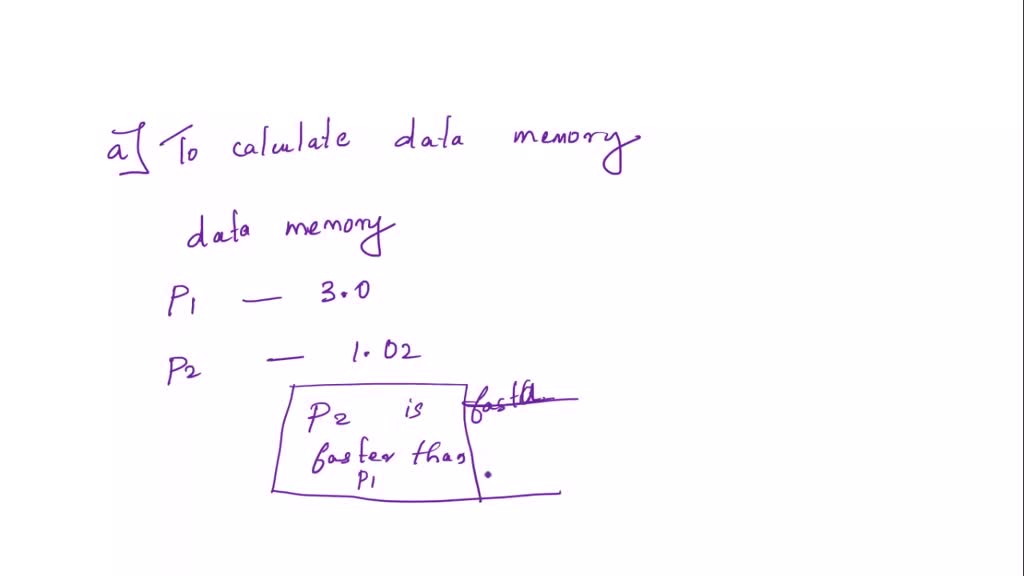 a] To calculate data memory
data memory
P1 — 3.0
P2 — 1.02
P2 is
faster than
P1